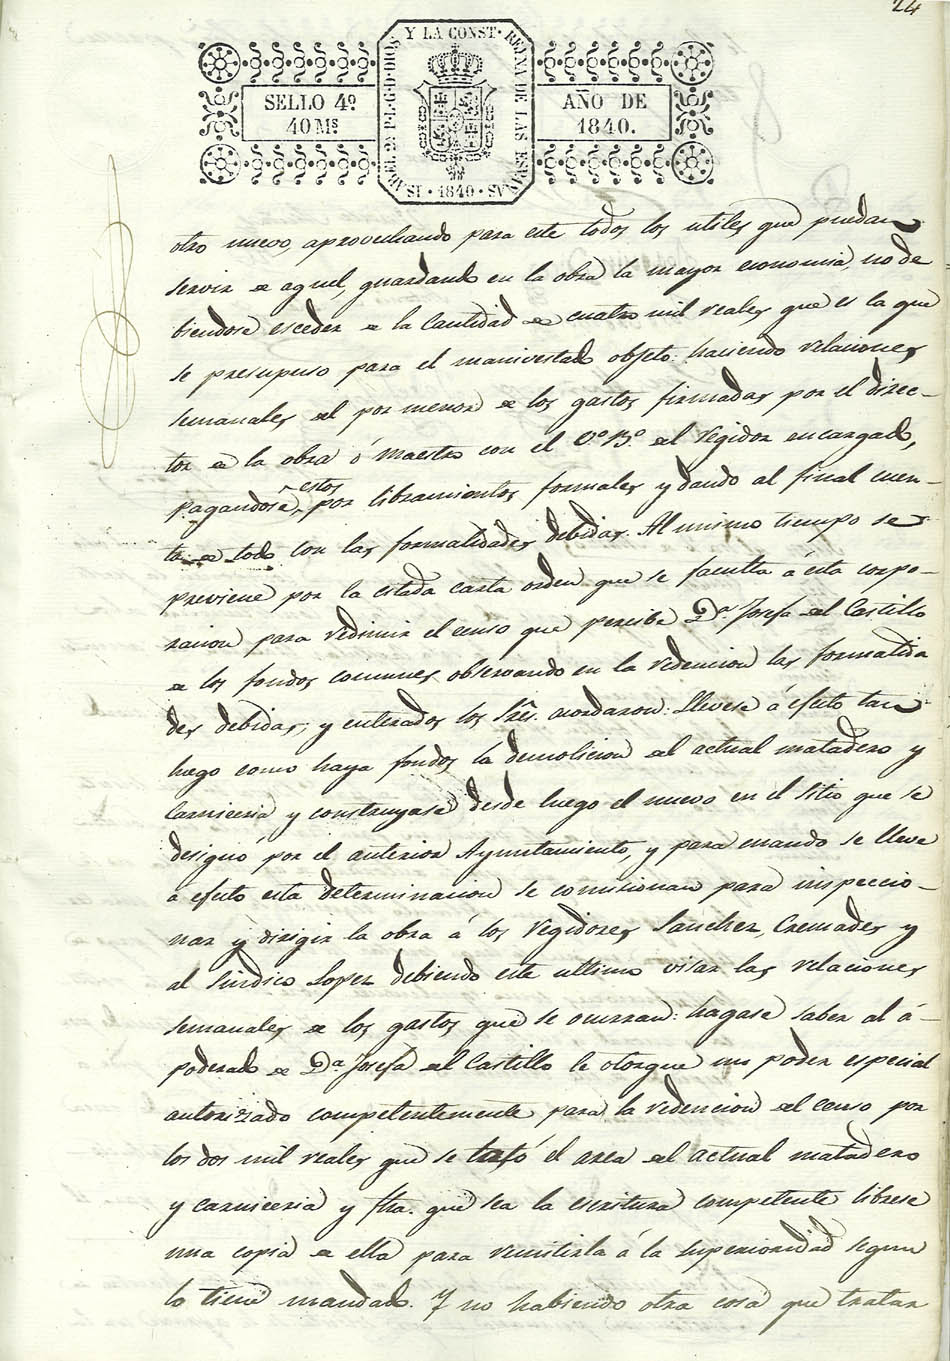 24
Y LA CONST. REYNA DE LAS ESPAÑAS · 1840 · ISABEL 2ª P.L.G.D DIOS
SELLO 4º
40 Ms
AÑO DE
1840.
otro nuevo, aprovechando para este todos los utiles que puedan
servir de aquel, guardando en la obra la mayor economia, no de
biendose esceder de la Cantidad de cuatro mil reales que es la que
se presupuso para el manivestado objeto: haciendo relaciones
semanales del por menor de los gastos firmadas por el direc-
tor de la obra ó Maestro con el Vº Bº del Regidor encargado,
pagandose estos por libramientos formales y dando al final cuen-
ta de todo con las formalidades debidas. Al mismo tiempo se
previene por la citada carta orden que se faculta á esta corpo-
racion para redimir el censo que percibe Dª Josefa del Castillo
de los fondos comunes observando en la redencion las formalida
des debidas; y enterados los Sres. acordaron: Llevese á efecto tan
luego como haya fondos la demolicion del actual matadero y
Carniceria y construyase desde luego el nuevo en el sitio que se
designó por el anterior Ayuntamiento, y para cuando se lleve
á efecto esta determinacion se comisionan para inspeccio-
nar y dirigir la obra á los Regidores Sanchez, Cremades y
al Sindico Lopez debiendo este ultimo visar las relaciones
semanales de los gastos que se ocurran: hagase saber al á-
poderado de Dª Josefa del Castillo le otorgue un poder especial
autorizado competentemente para la redencion del censo por
los dos mil reales que se trató el area del actual matadero
y carniceria y fha. que sea la escritura competente librese
una copia de ella para remitirla á la superioridad segun
lo tiene mandado. Y no habiendo otra cosa que tratar